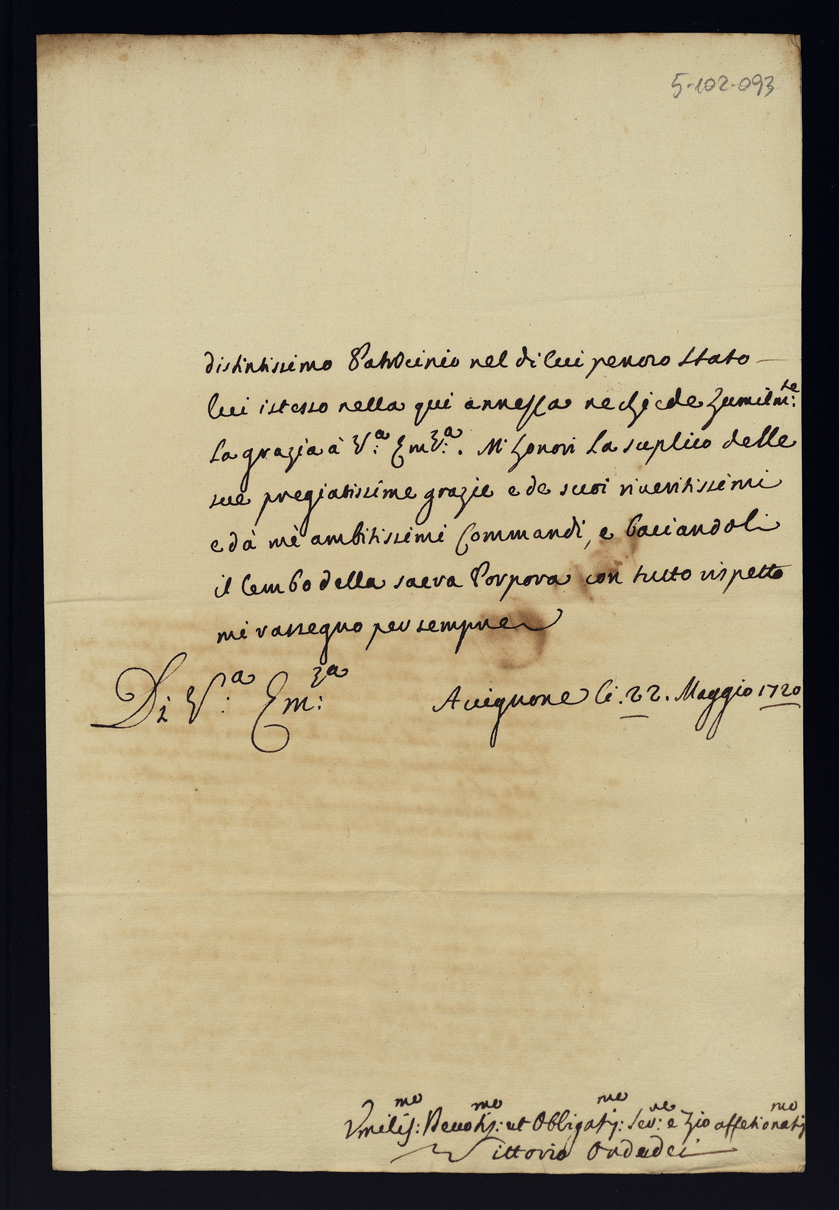 5-102-093
distintissimo Patrocinio nel di lui penoso stato —
lui istesso nella qui annessa ne chiede humilm:te
la grazia à V:a Em:za. M'honori la suplico delle
sue pregiatissime grazie e de suoi riveritissimi
e da me ambitissimi Commandi, e baciandoli
il lembo della sacra Porpora con tutto rispetto
mi rassegno per sempre
Di V:a Em:za
Avignone li. 22. Maggio 1720
Vmiliss:mo Devotis:mo et Obligatis:mo Ser:re e Zio affetionatis:mo
Vittorio Ondedei